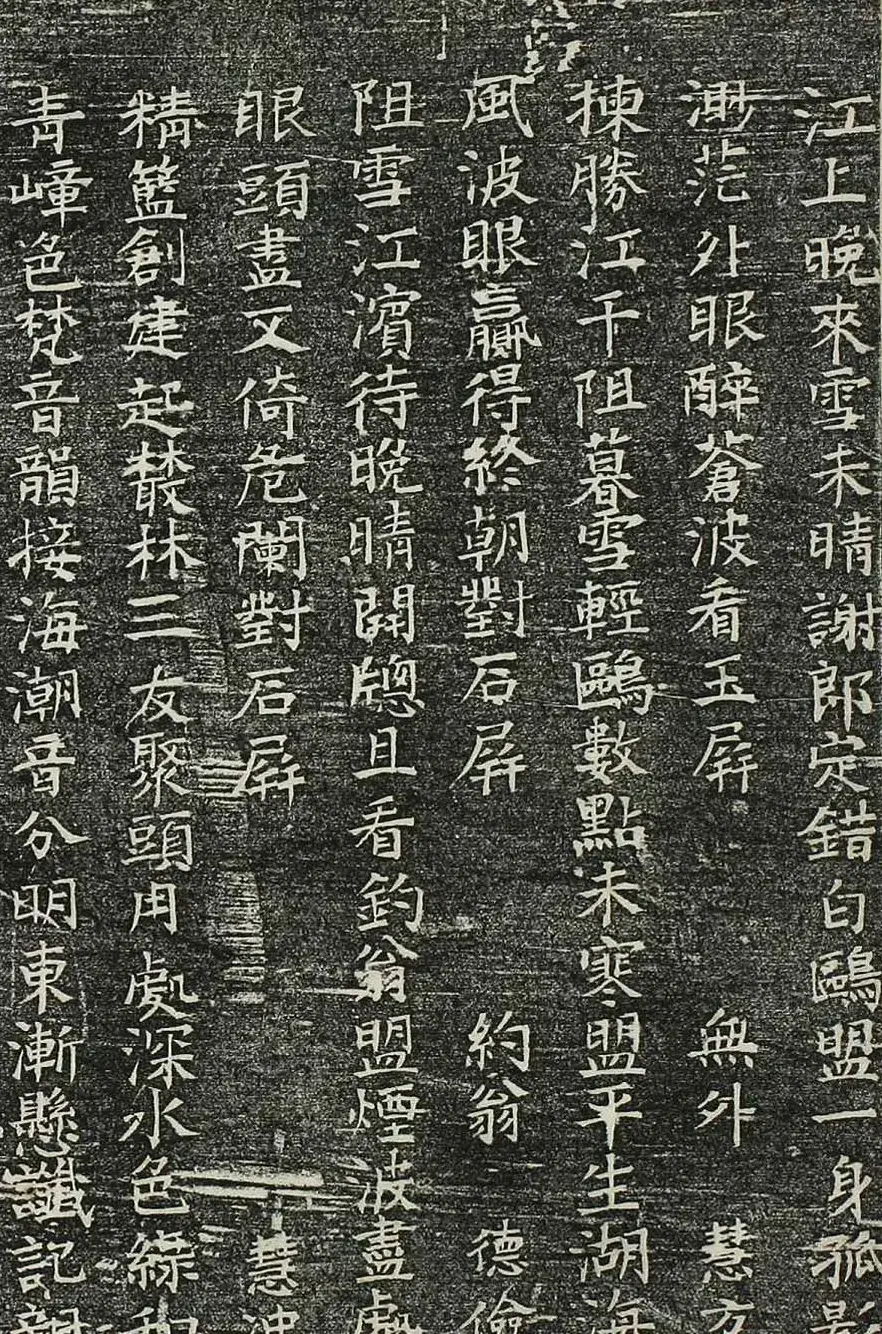 江上晚來雪未晴謝郎定錯白鷗盟一身孤影
渺茫外眼醉蒼波看玉屛 無外 慧方
揀勝江干阻暮雪輕鷗數點未寒盟平生湖海
風波眼贏得終朝對石屛 約翁 德儉
阻雪江濱待晚晴開牕且看釣翁盟煙波盡處
眼頭盡又倚危闌對石屛 慧冲
精籃創建起叢林三友聚頭用處深水色綠和
靑嶂色梵音韻接海潮音分明東漸懸讖記